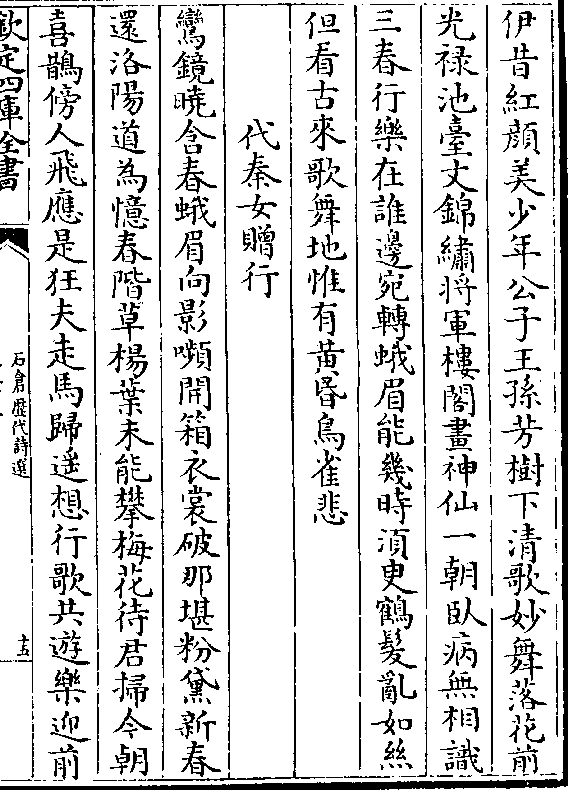 伊昔紅顔美少年公子王孫芳樹下清歌妙舞落花前
光禄池臺文錦繡將軍樓閣畫神仙一朝臥病無相識
三春行樂在誰邊宛轉蛾眉能幾時須更鶴髮亂如絲
但看古來歌舞地惟有黄昏鳥雀悲
代秦女贈行
鸞鏡曉含春蛾眉向影嚬開箱衣裳破那堪粉黛新春
還洛陽道為憶春階草楊葉未能攀梅花待君掃今朝
喜鵲傍人飛應是狂夫走馬歸遥想行歌共遊樂迎前
欽定四庫全書
石倉歷代詩選
十五